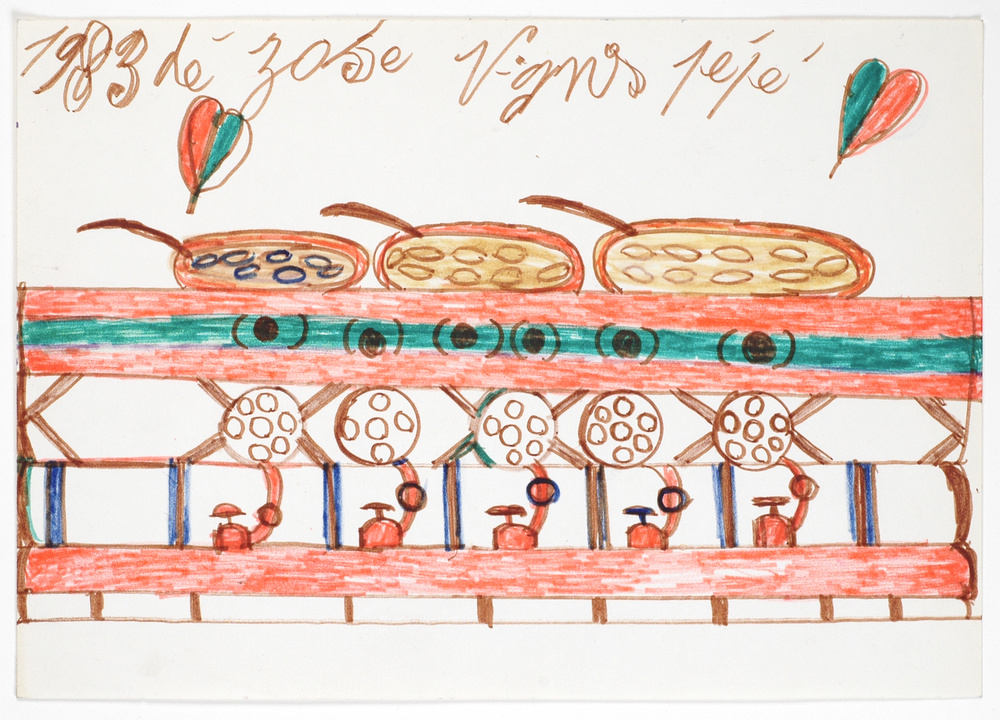 1983 dé zose Vignis pépé